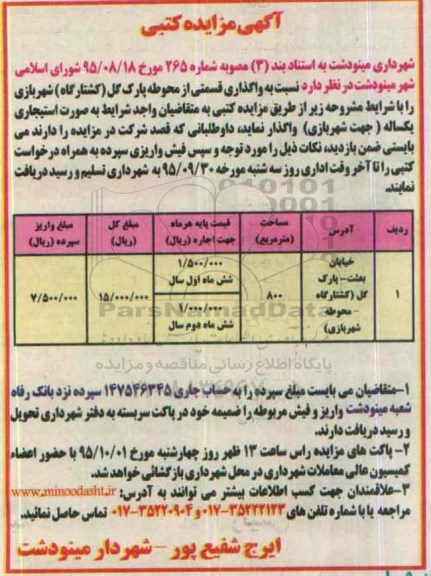 آگهی مزایده کتبی
شهرداری مینودشت به استناد بند (۳) مصوبه شماره ۲۶۵ مورخ ۹۵/۰۸/۱۸ شورای اسلامی
شهر مینودشت در نظر دارد نسبت به واگذاری قسمتی از محوطه پارک گل (کشتارگاه) شهربازی
را با شرایط مشروحه زیر از طریق مزایده کتبی به متقاضیان واجد شرایط به صورت استیجاری
یکساله ( جهت شهربازی) واگذار نماید، داوطلبانی که قصد شرکت در مزایده را دارند می
بایستی ضمن بازدید، نکات ذیل را مورد توجه و سپس فیش واریزی سپرده به همراه درخواست
کتبی را تا آخر وقت اداری روز سه شنبه مورخه ۹۵/۰۹/۳۰ به شهرداری تسلیم و رسید دریافت
نمایند.
ردیف آدرس مساحت (مترمربع) قیمت پایه هرماه جهت اجاره (ریال) مبلغ کل (ریال) مبلغ واریز سپرده (ریال)
۱ خیابان بعثت- پارک گل (کشتارگاه - محوطه شهربازی) ۸۰۰ ۱/۵۰۰/۰۰۰ شش ماه اول سال ۱/۰۰۰/۰۰۰ شش ماه دوم سال ۱۵/۰۰۰/۰۰۰ ۷/۵۰۰/۰۰۰
ParsNamadData
پایگاه اطلاع رسانی مناقصه و مزایده
۱-متقاضیان می بایست مبلغ سپرده را به حساب جاری ۱۴۷۵۴۶۳۴۵ سپرده نزد بانک رفاه
شعبه مینودشت واریز و فیش مربوطه را ضمیمه خود در پاکت سربسته به دفتر شهرداری تحویل
و رسید دریافت دارند.
۲- پاکت های مزایده راس ساعت ۱۳ ظهر روز چهارشنبه مورخ ۹۵/۱۰/۰۱ با حضور اعضاء
کمیسیون عالی معاملات شهرداری در محل شهرداری بازگشائی خواهد شد.
۳-علاقمندان جهت کسب اطلاعات بیشتر می توانند به آدرس: www.minoodasht.ir
مراجعه یا با شماره تلفن های ۳۵۲۲۲۱۲۳-۰۱۷ و ۳۵۲۲۰۹۰۴-۰۱۷ تماس حاصل نمائید.
ایرج شفیع پور - شهردار مینودشت